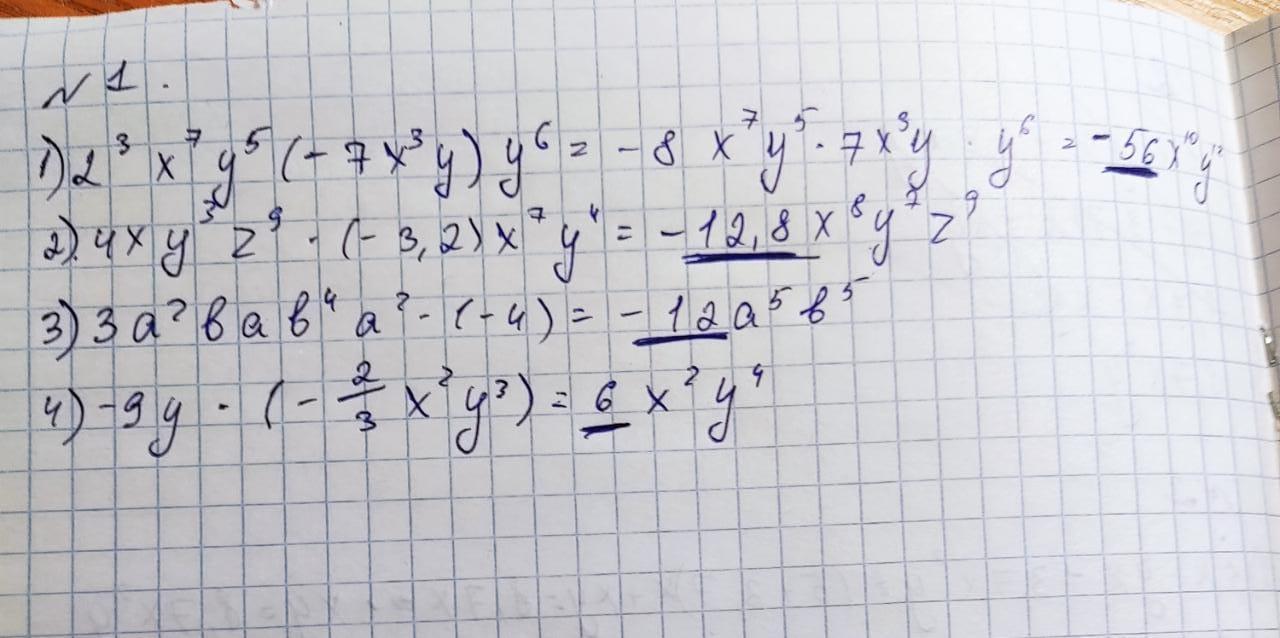 № 1.
1) 2³ x⁷ y⁵ (- 7x³y) y⁶ = - 8 x⁷y⁵ · 7x³y · y⁶ = - 56 x¹⁰y¹²
2) 4xy³z⁹ · (- 3,2) x⁷y⁴ = - 12,8 x⁸y⁷z⁹
3) 3a²bab⁴a² · (- 4) = - 12a⁵b⁵
4) -9y · (- 2/3 x²y³) = 6 x²y⁴